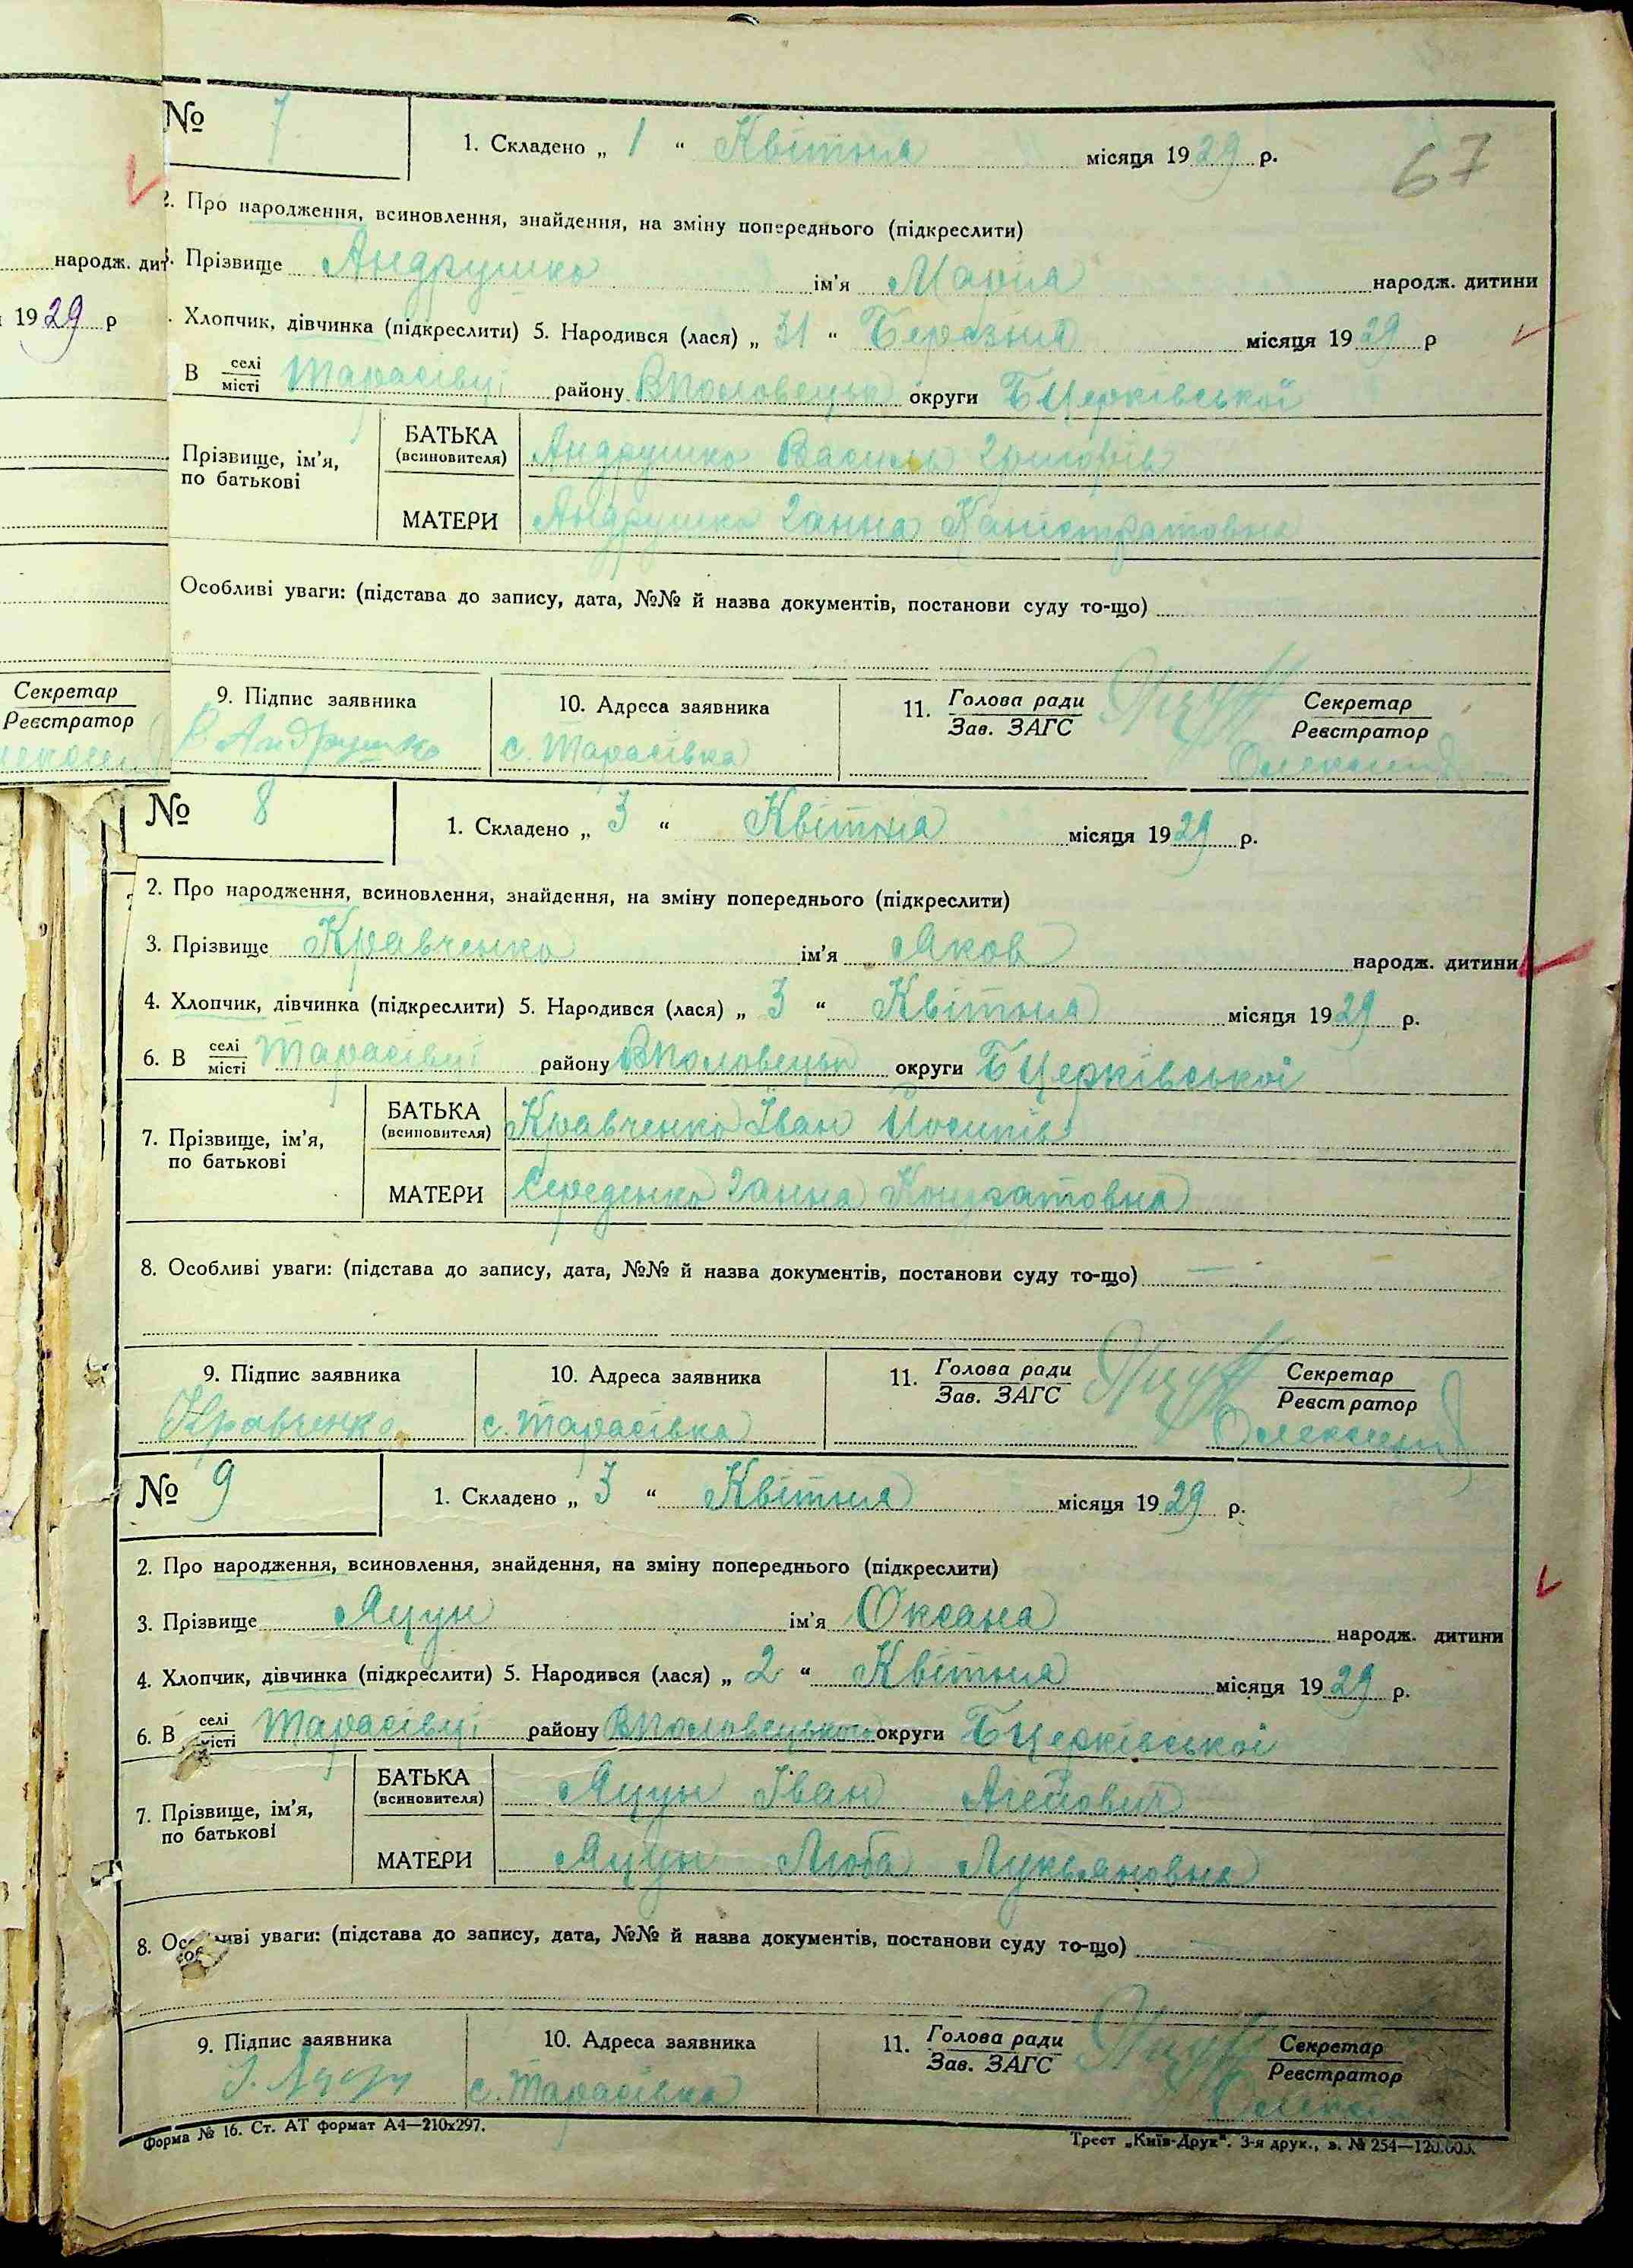 № 7
1. Складено „ 1 “ Квітня місяця 1929 р.
67
2. Про народження, всиновлення, знайдення, на зміну попереднього (підкреслити)
народж. дит
Прізвище Андрушко ім'я Марія народж. дитини
1929 р
Хлопчик, дівчинка (підкреслити) 5. Народився (лася) „ 31 “ Березня місяця 1929 р
В селі
місті Тарасівці району ВПоловецьк округи БЦерківської
Прізвище, ім'я,
по батькові
БАТЬКА
(всиновителя) Андрушко Василь Григорів
МАТЕРИ Андрушко Ганна
Особливі уваги: (підстава до запису, дата, №№ й назва документів, постанови суду то-що)
Секретар
Реєстратор
9. Підпис заявника
В Андрушко
10. Адреса заявника
с. Тарасівка
11. Голова ради
Зав. ЗАГС
Секретар
Реєстратор
№ 8
1. Складено „ 3 “ Квітня місяця 1929 р.
2. Про народження, всиновлення, знайдення, на зміну попереднього (підкреслити)
3. Прізвище Кравченко ім'я Яков народж. дитини
4. Хлопчик, дівчинка (підкреслити) 5. Народився (лася) „ 3 “ Квітня місяця 1929 р.
6. В селі
місті Тарасівці району ВПоловецьк округи БЦерківської
7. Прізвище, ім'я,
по батькові
БАТЬКА
(всиновителя) Кравченко Іван Йосипів
МАТЕРИ Середенко Ганна Кондратовна
8. Особливі уваги: (підстава до запису, дата, №№ й назва документів, постанови суду то-що) —
9. Підпис заявника
Кравченко
10. Адреса заявника
с. Тарасівка
11. Голова ради
Зав. ЗАГС
Секретар
Реєстратор
№ 9
1. Складено „ 3 “ Квітня місяця 1929 р.
2. Про народження, всиновлення, знайдення, на зміну попереднього (підкреслити)
3. Прізвище Яцун ім'я Оксана народж. дитини
4. Хлопчик, дівчинка (підкреслити) 5. Народився (лася) „ 2 “ Квітня місяця 1929 р.
6. В селі
місті Тарасівці району ВПоловецького округи БЦерківської
7. Прізвище, ім'я,
по батькові
БАТЬКА
(всиновителя) Яцун Іван Агейович
МАТЕРИ Яцун Люба Лукьяновна
8. Особливі уваги: (підстава до запису, дата, №№ й назва документів, постанови суду то-що)
9. Підпис заявника
10. Адреса заявника
с. Тарасівка
11. Голова ради
Зав. ЗАГС
Секретар
Реєстратор
Форма № 16. Ст. АТ формат А4—210х297.
Трест „Київ-Друк“. 3-я друк., з. № 254—120.000.